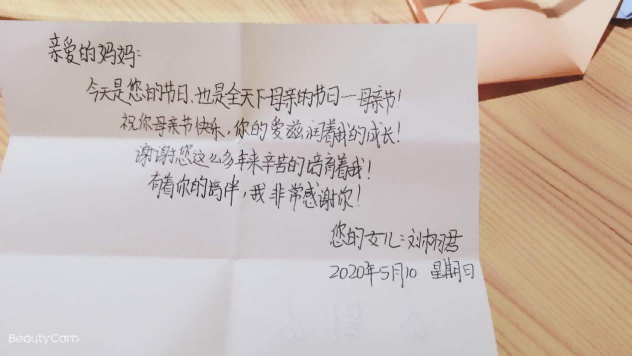 亲爱的妈妈:
今天是您的节日、也是全天下母亲的节日—母亲节!
祝你母亲节快乐,你的爱滋润着我的成长!
谢谢您这么多年来辛苦的培育着我!
有着你的陪伴,我非常感谢你!
您的女儿:刘栩君
2020年5月10 星期日
BeautyCam